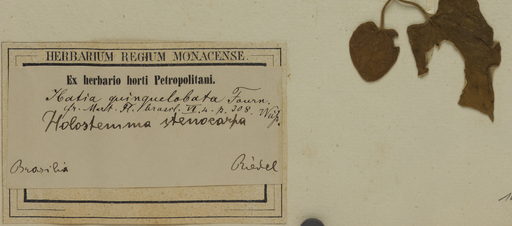 HERBARIUM REGIUM MONACENSE.
Ex herbario horti Petropolitani.
quinquelobata Fourn.
cfr. Mart. Fl. brasil. VI. 4. p. 308.
Holostemma stenocarpa
Brasilia Riedel